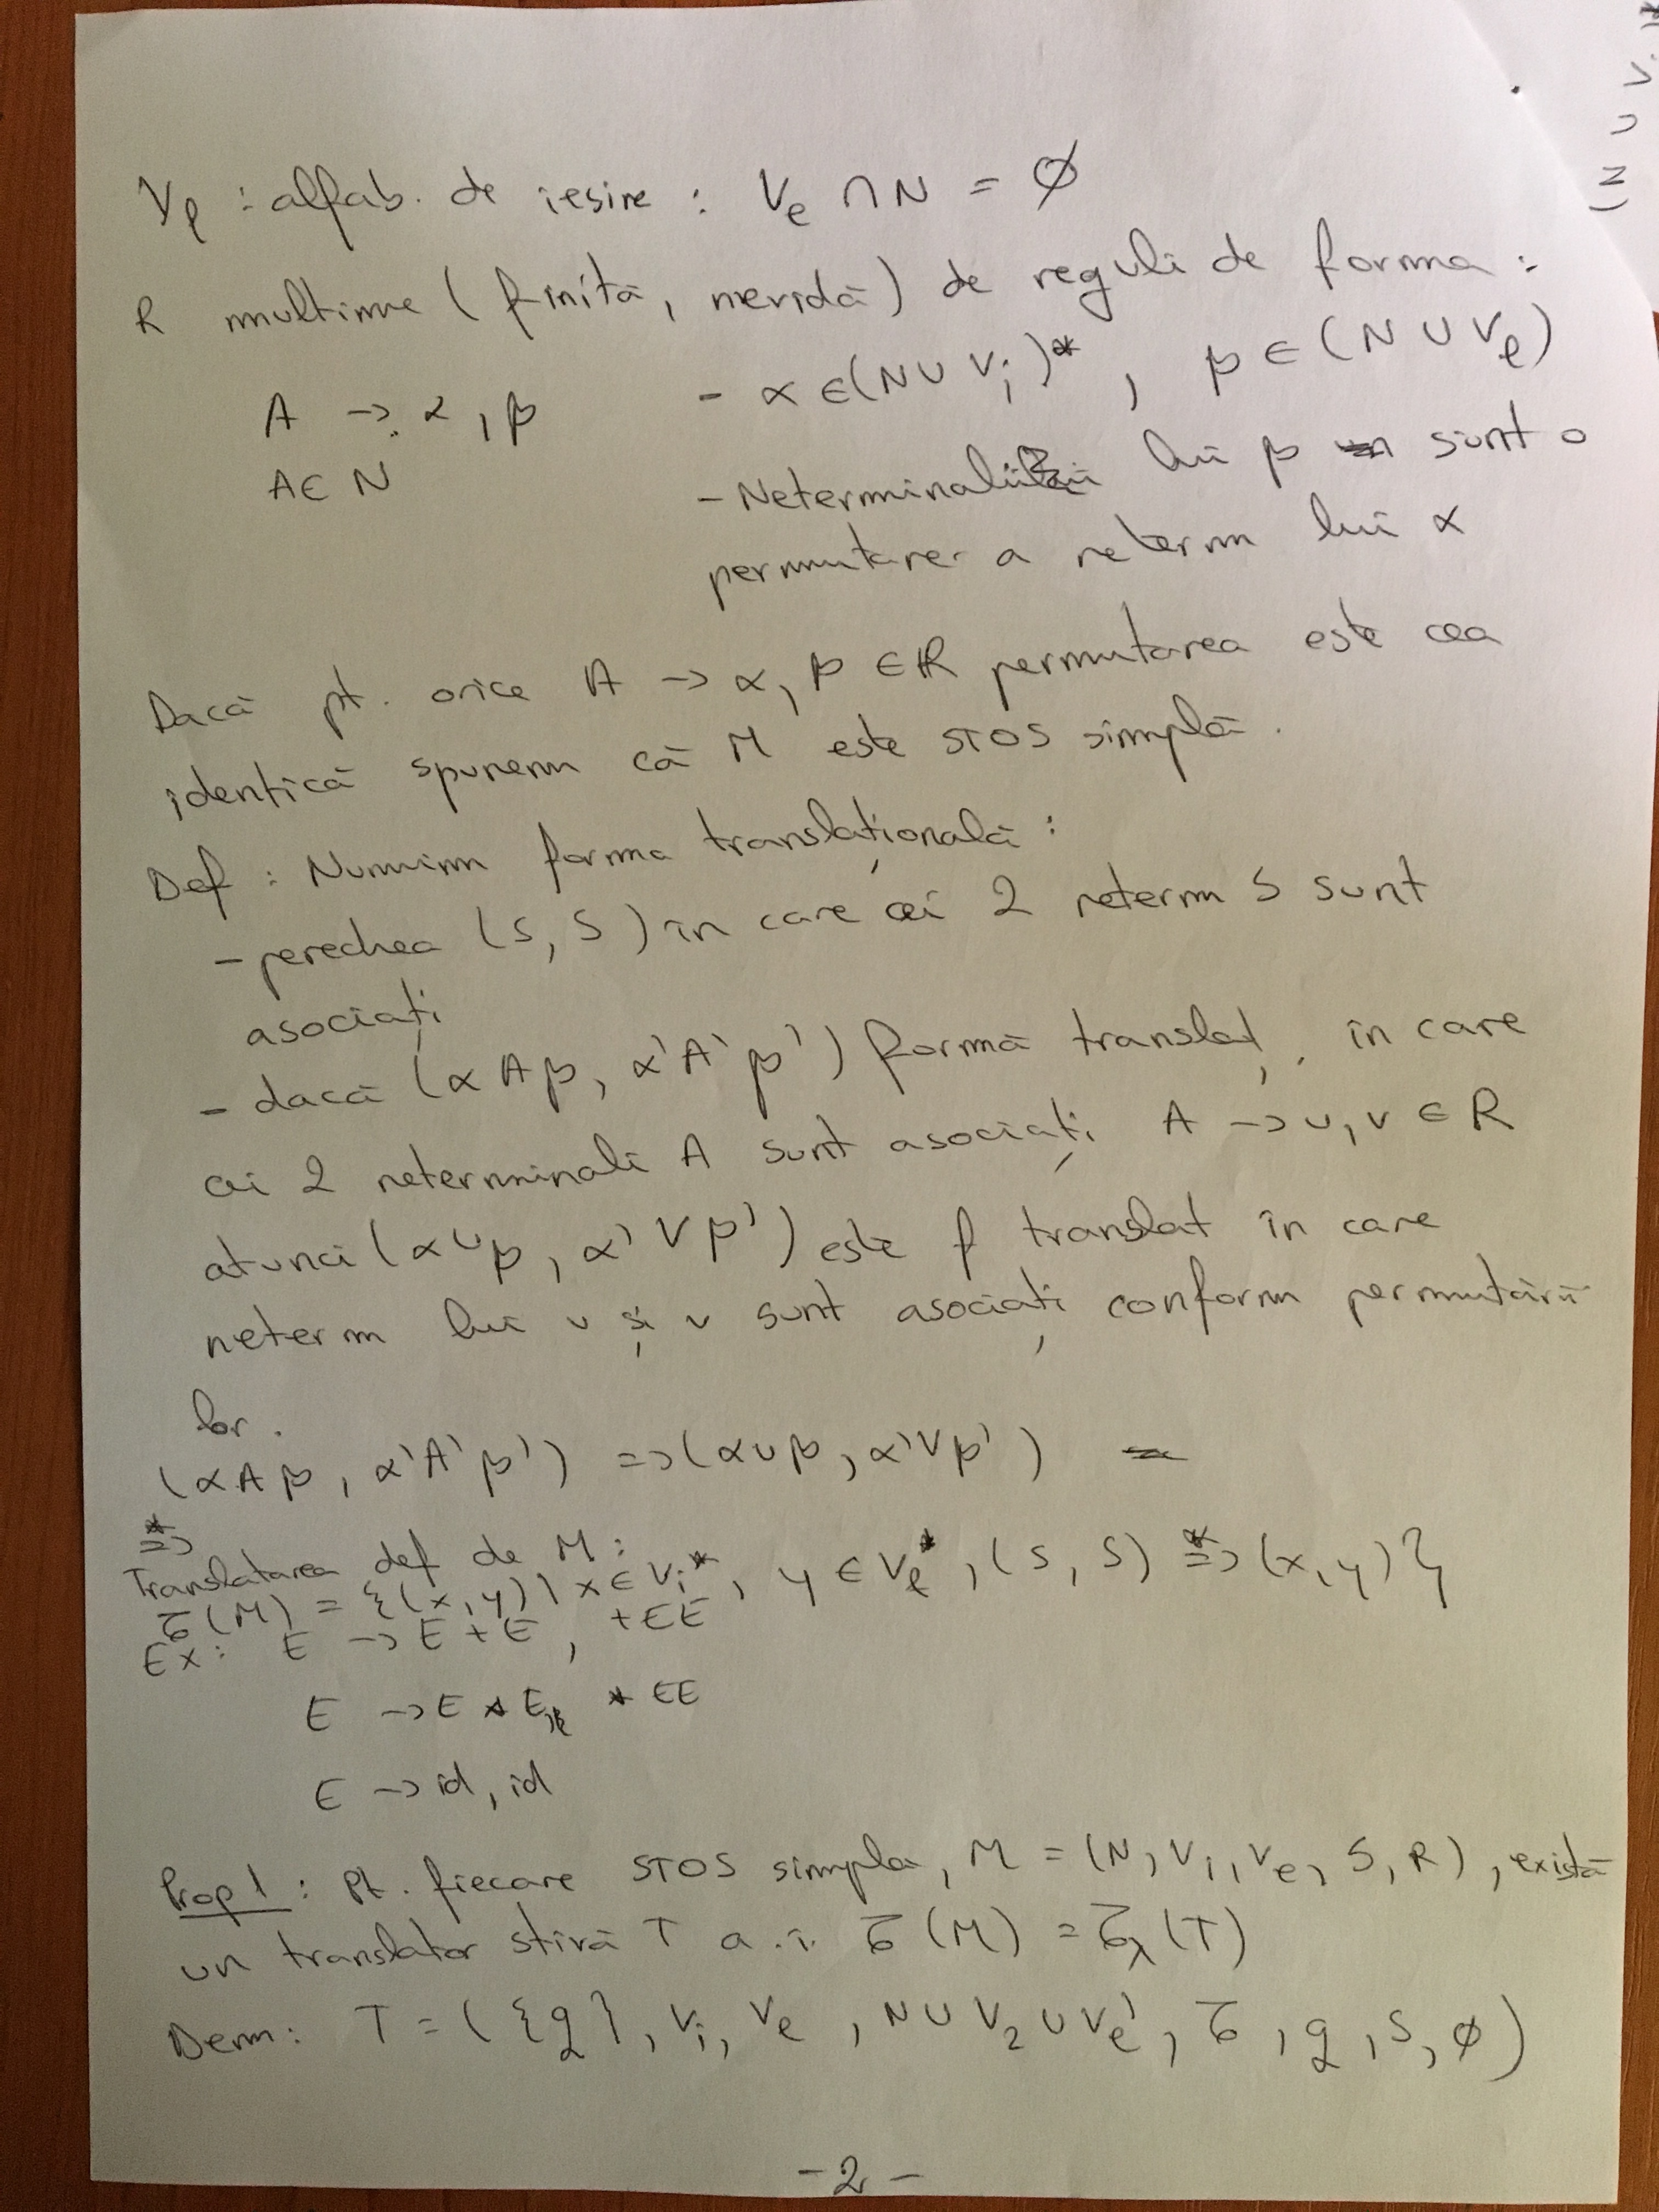 Ve : alfab. de iesire : Ve ∩ N = ∅
R multime (finită, nevidă) de reguli de forma :
A → α, β - α ∈ (N ∪ Vi)*, β ∈ (N ∪ Ve)
A ∈ N - Neterminalii lui β sunt o
permutare a neterm lui α
Dacă pt. orice A → α, β ∈ R permutarea este cea
identică spunem că M este STOS simplă.
Def : Numim forma translațională :
- perechea (S, S) în care cei 2 neterm S sunt
asociați
- dacă (α A β, α' A' β') formă translaț. în care
cei 2 neterminali A sunt asociați A → u, v ∈ R
atunci (α u β, α' v β') este f translat în care
neterm lui u și v sunt asociați conform permutării
lor.
(α A β, α' A' β') => (α u β, α' v β')
*=>
Translatarea def de M :
τ(M) = {(x, y) | x ∈ Vi*, y ∈ Ve*, (S, S) *=> (x, y)}
Ex : E → E + E, +EE
E → E * E, * EE
E → id, id
Prop 1 : Pt. fiecare STOS simpla, M = (N, Vi, Ve, S, R), există
un translator stivă T a.î. τ(M) = τλ(T)
Dem : T = ({q}, Vi, Ve, N ∪ V2 ∪ Ve', τ, q, S, ∅)
- 2 -